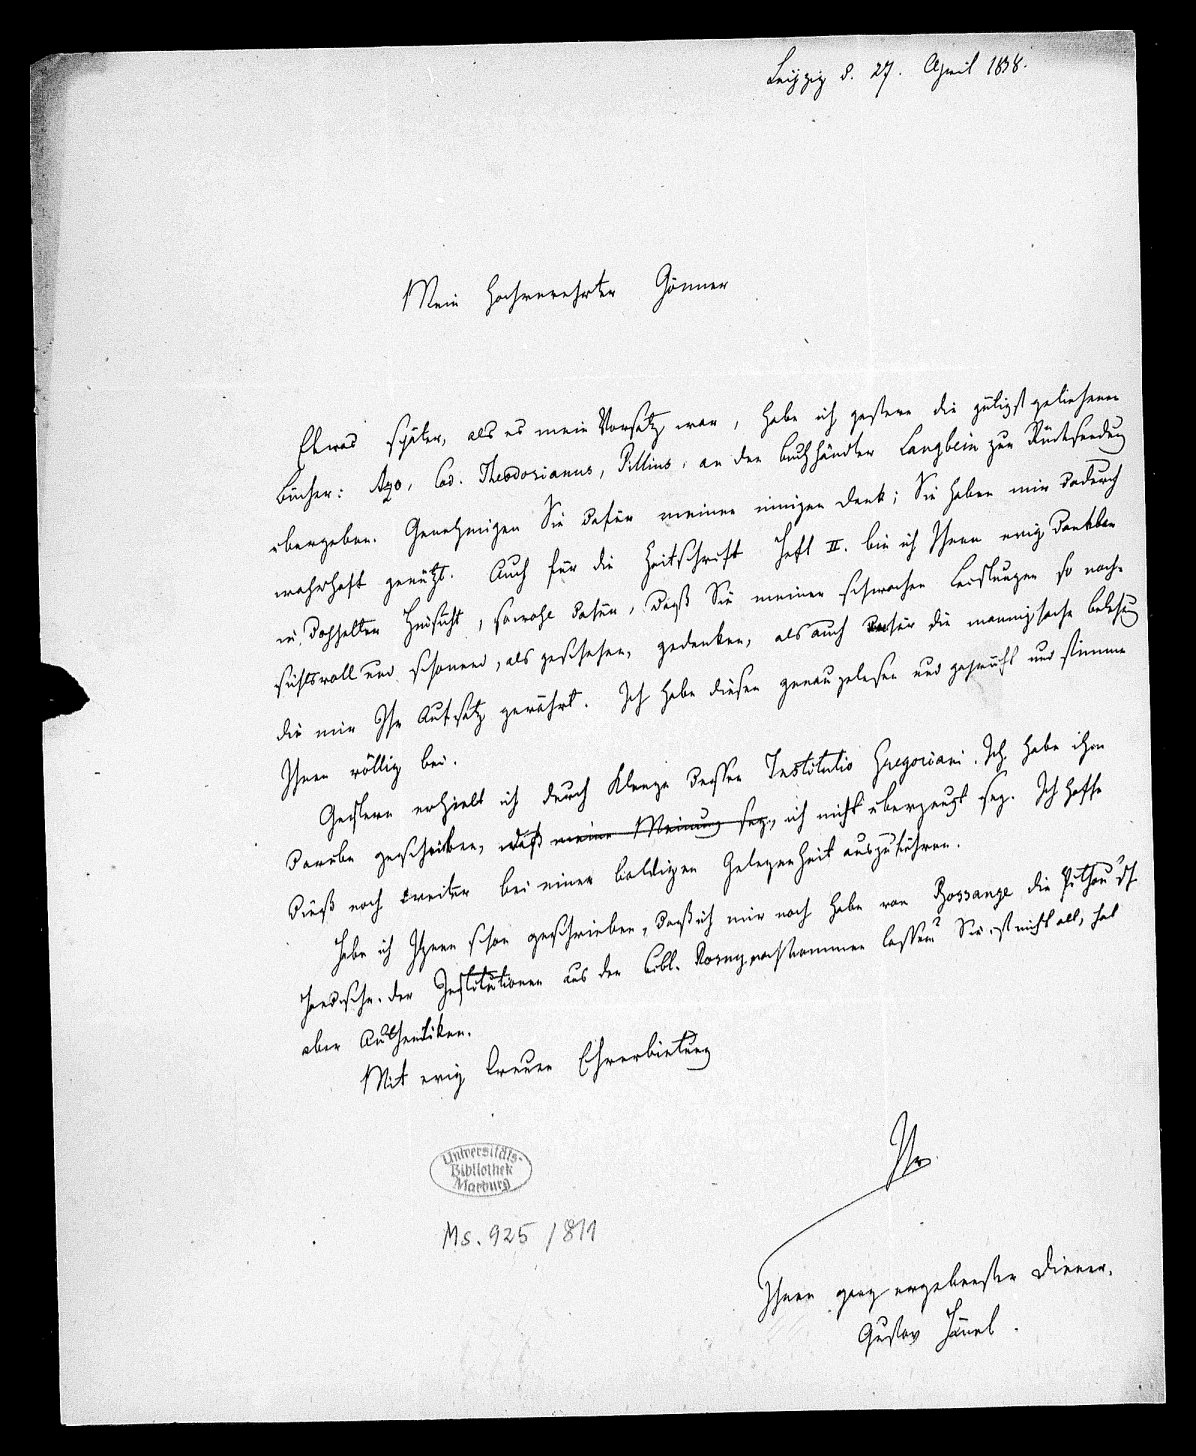 Leipzig d. 27. April 1838.
Mein hochverehrter Gönner
Etwas später, als es mein Vorsatz war, habe ich gestern die gütigst geliehenen
Bücher: Azo, Cod. Theodosianus, Pillius, an den Buchhändler Langbein zur Rücksendung
übergeben. Genehmigen Sie dafür meinen innigen Dank; Sie haben mir dadurch
wahrhaft genützt. Auch für die Zeitschrift Heft II. bin ich Ihnen ewig dankbar
in doppelter Hinsicht, sowohl dafür, daß Sie meiner schwachen Leistungen so nach-
sichtsvoll und schonend, als geschehen, gedenken, als auch dafür die mannigfache Belehrung
die mir Ihr Aufsatz gewährt. Ich habe diesen genau gelesen und geprüft und stimme
Ihnen völlig bei.
Gestern erhielt ich durch Klenze dessen Institutio Gregoriani. Ich habe ihm
darüber geschrieben, daß meine Meinung sey, ich nicht überzeugt sey. Ich hoffe
dieß noch weiter bei einer baldigen Gelegenheit auszuführen.
Habe ich Ihnen schon geschrieben, daß ich mir noch habe von Bossange die Pithou'sch
Handschr. der Institutionen aus der Bibl. Rosny nachkommen lassen? Sie ist nicht alt, hat
aber Authentiken.
Mit ewig treuer Ehrerbietung
Ihr
Ihnen ganz ergebenster Diener.
Gustav Hänel.
Universitäts-
Bibliothek
Marburg
Ms. 925 / 811